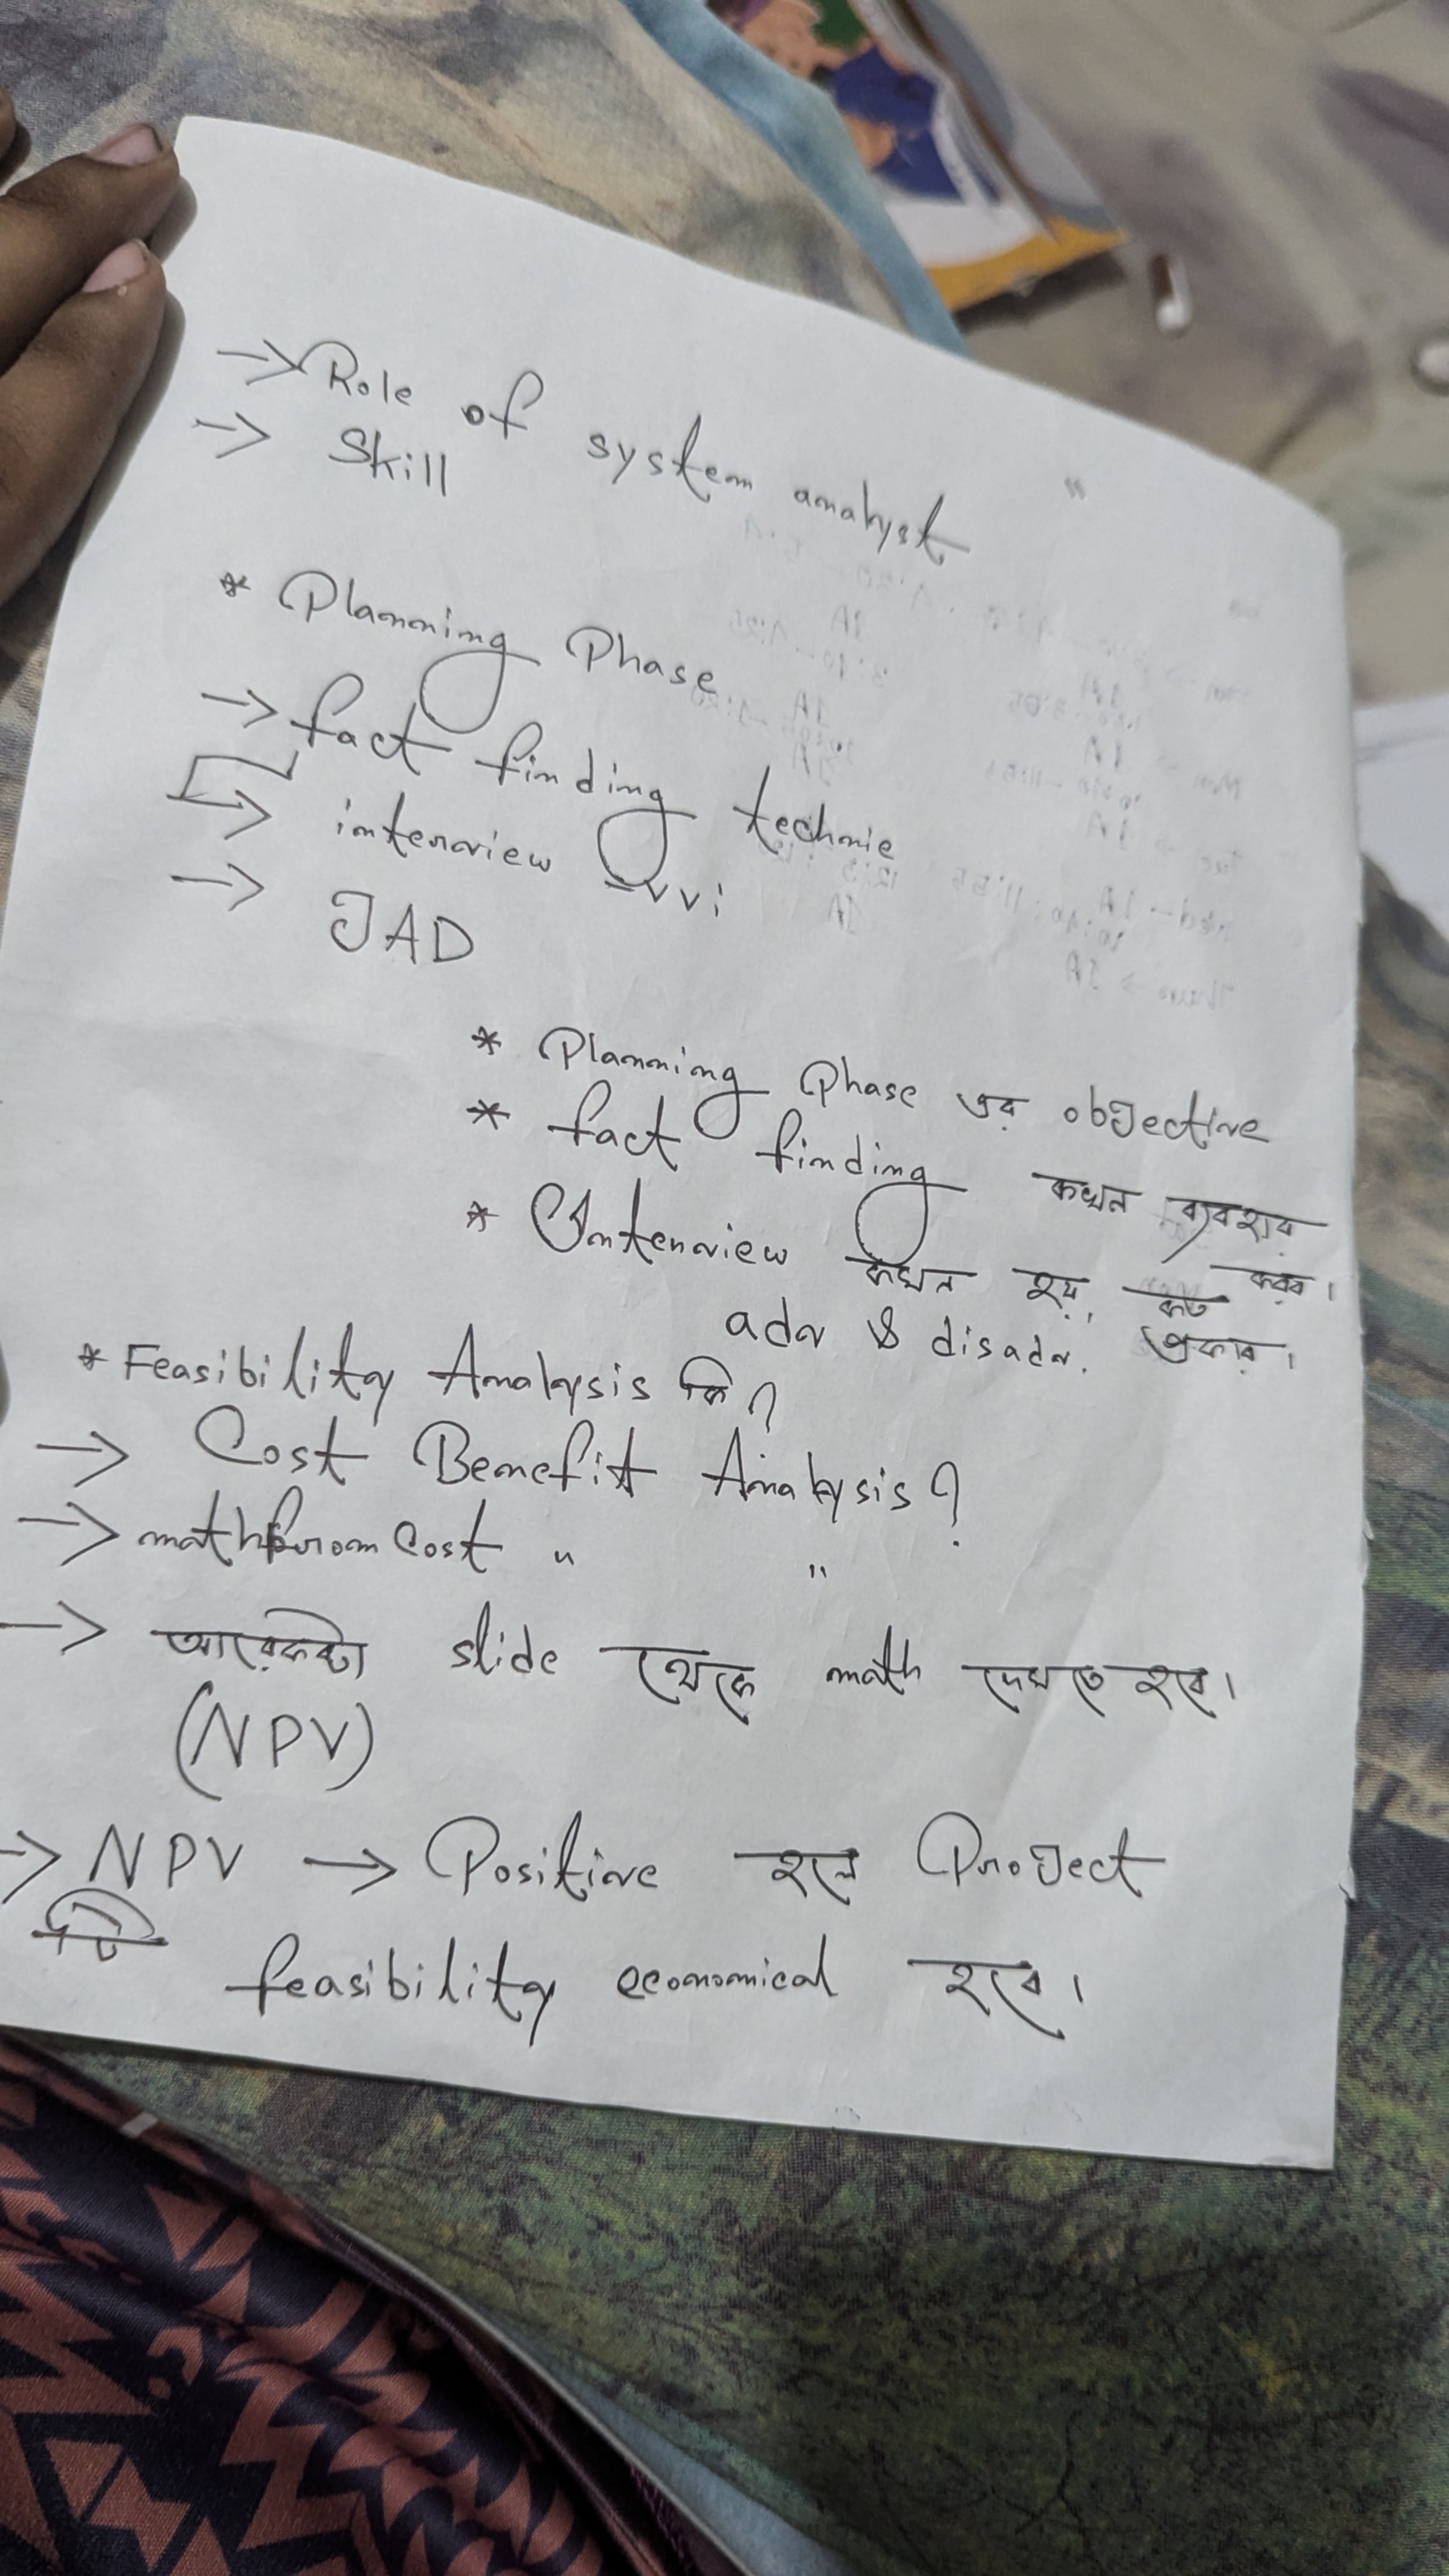 → Role of system analyst
→ Skill
* Planning Phase
→ fact finding technic
→ interview - vvi
→ JAD
* Planning Phase এর objective
* fact finding কখন ব্যবহার করব।
* Interview কখন হয়, কত প্রকার।
adv & disadv.
* Feasibility Analysis কি?
→ Cost Benefit Analysis?
→ math from Cost " "
→ আরেকটা slide থেকে math দেখতে হবে।
(NPV)
→ NPV → Positive হলে Project
feasibility economical হবে।